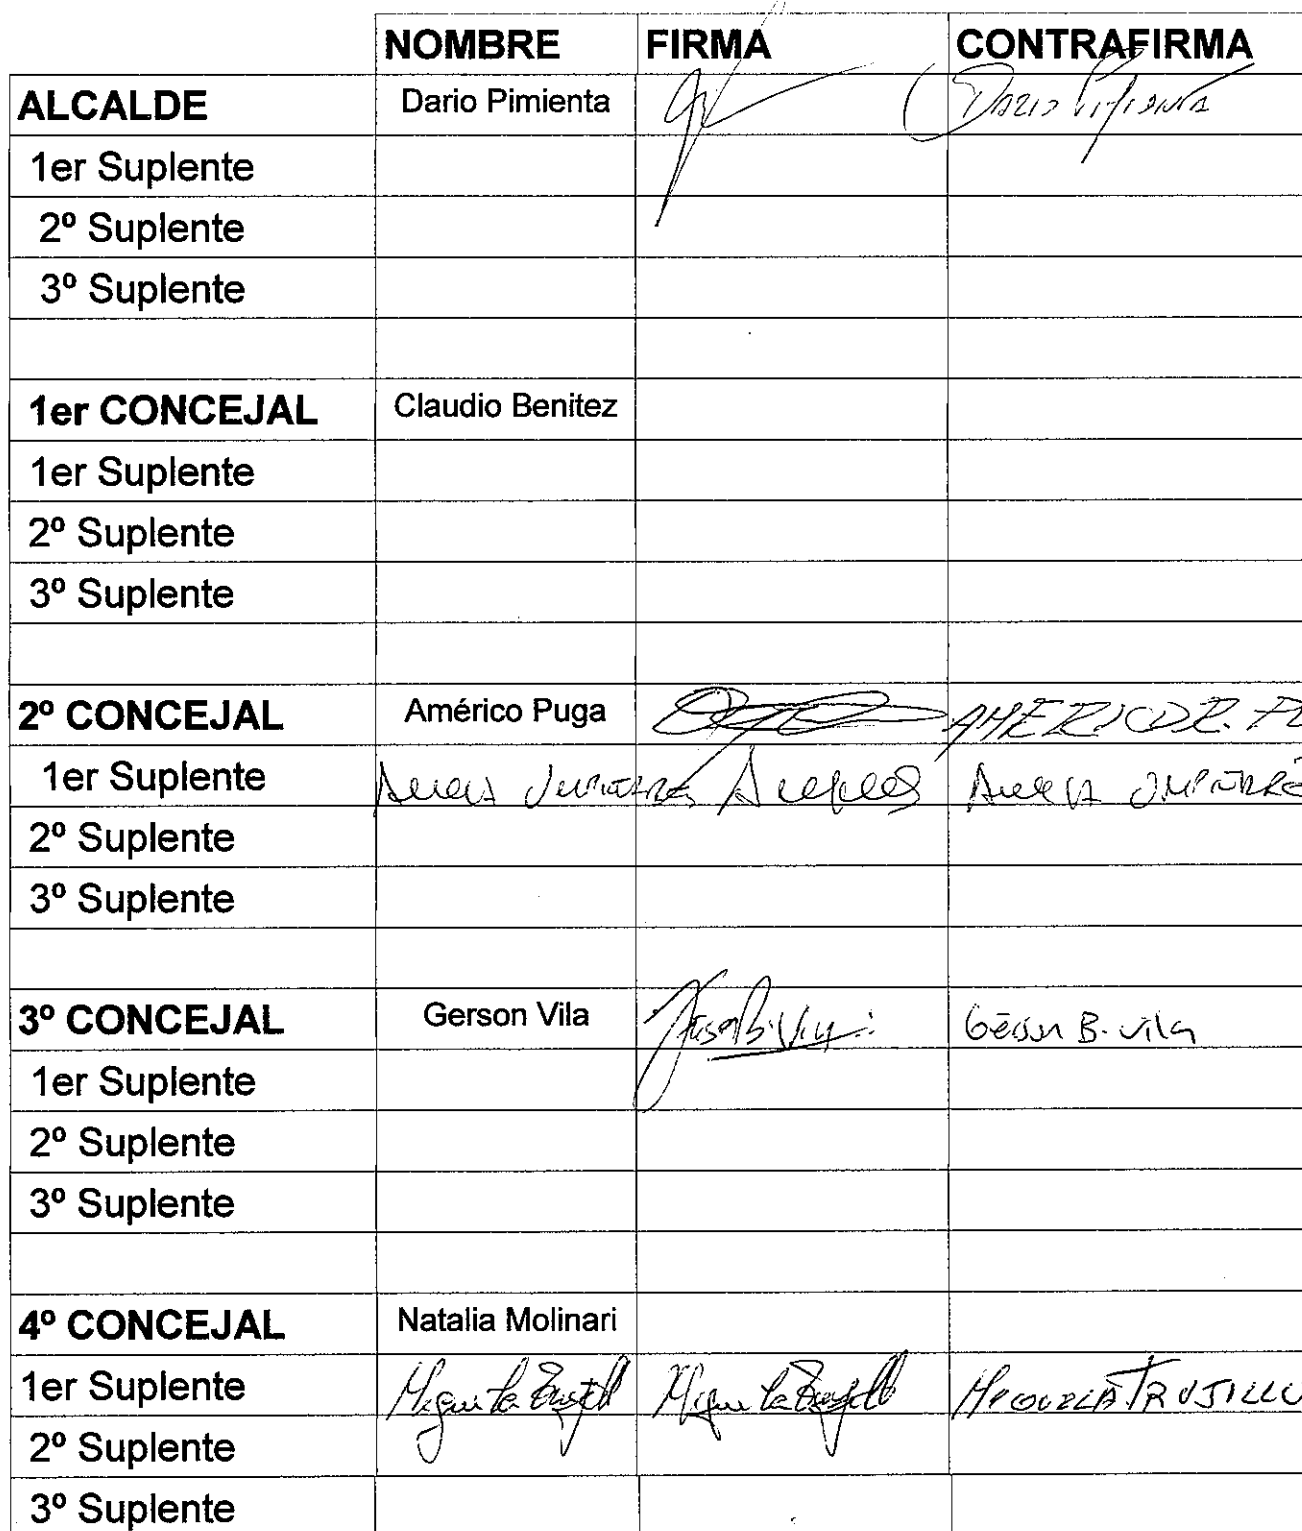 NOMBRE FIRMA CONTRAFIRMA
ALCALDE Dario Pimienta Dario Pimienta
1er Suplente
2º Suplente
3º Suplente
1er CONCEJAL Claudio Benitez
1er Suplente
2º Suplente
3º Suplente
2º CONCEJAL Américo Puga AMERICO R. PU
1er Suplente
2º Suplente
3º Suplente
3º CONCEJAL Gerson Vila Gerson B. Vila
1er Suplente
2º Suplente
3º Suplente
4º CONCEJAL Natalia Molinari
1er Suplente TRUJILLO
2º Suplente
3º Suplente